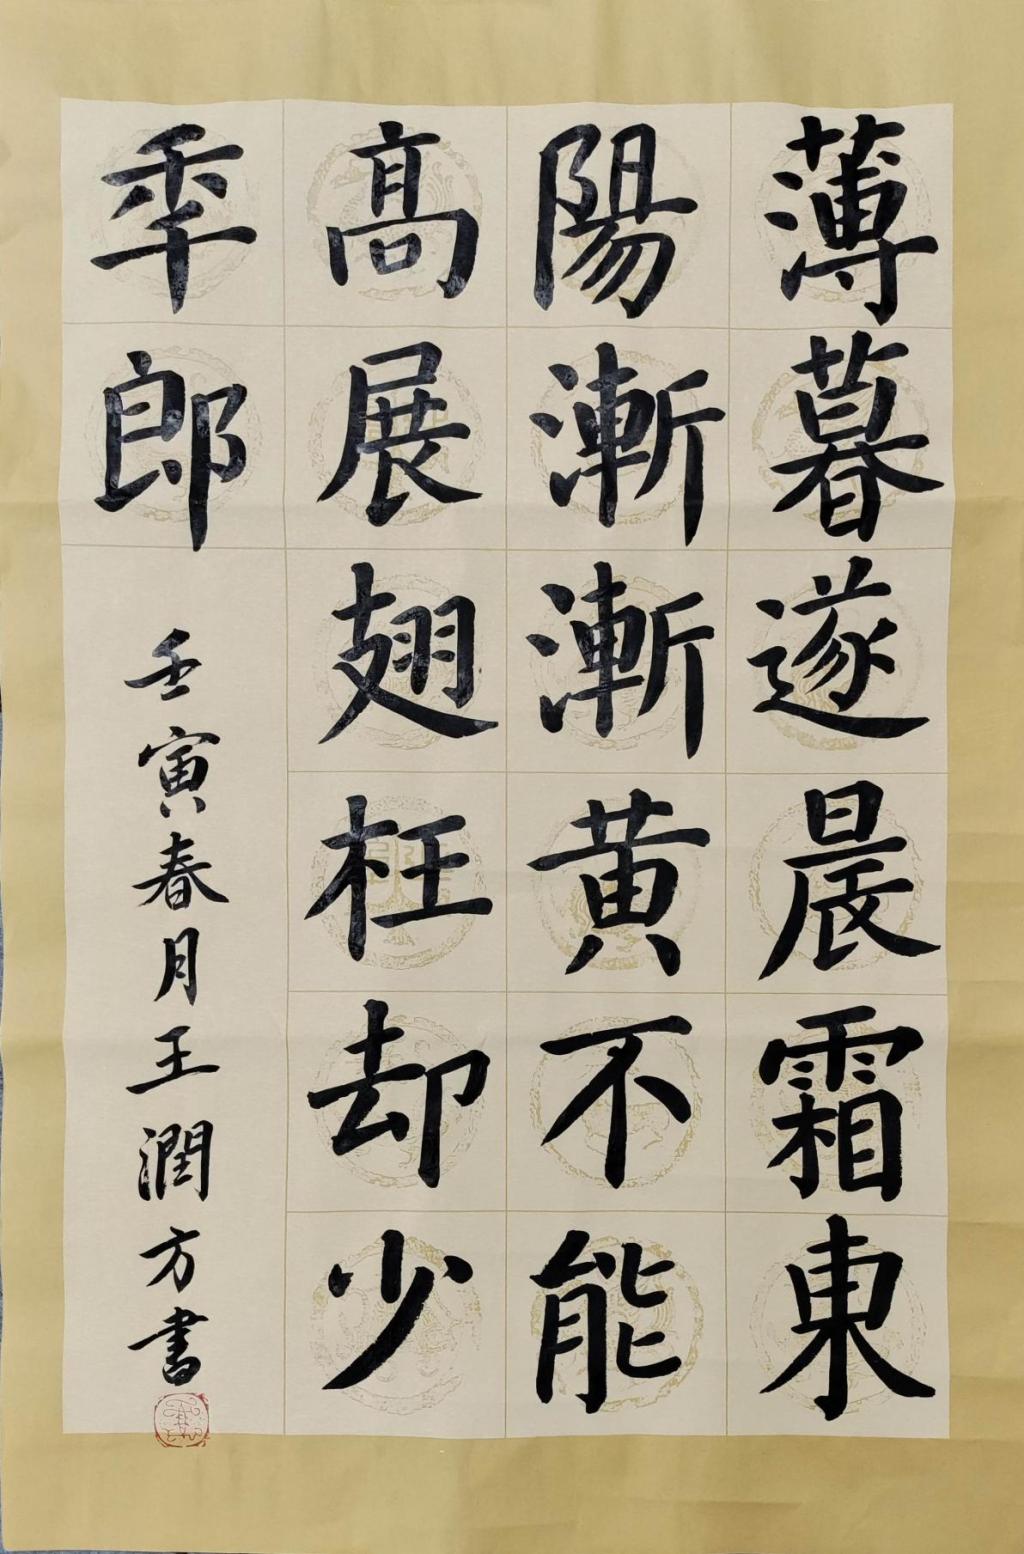 薄暮遂晨霜東
陽漸漸黄不能
髙展翅枉却少
年郎
壬寅春月王潤方書